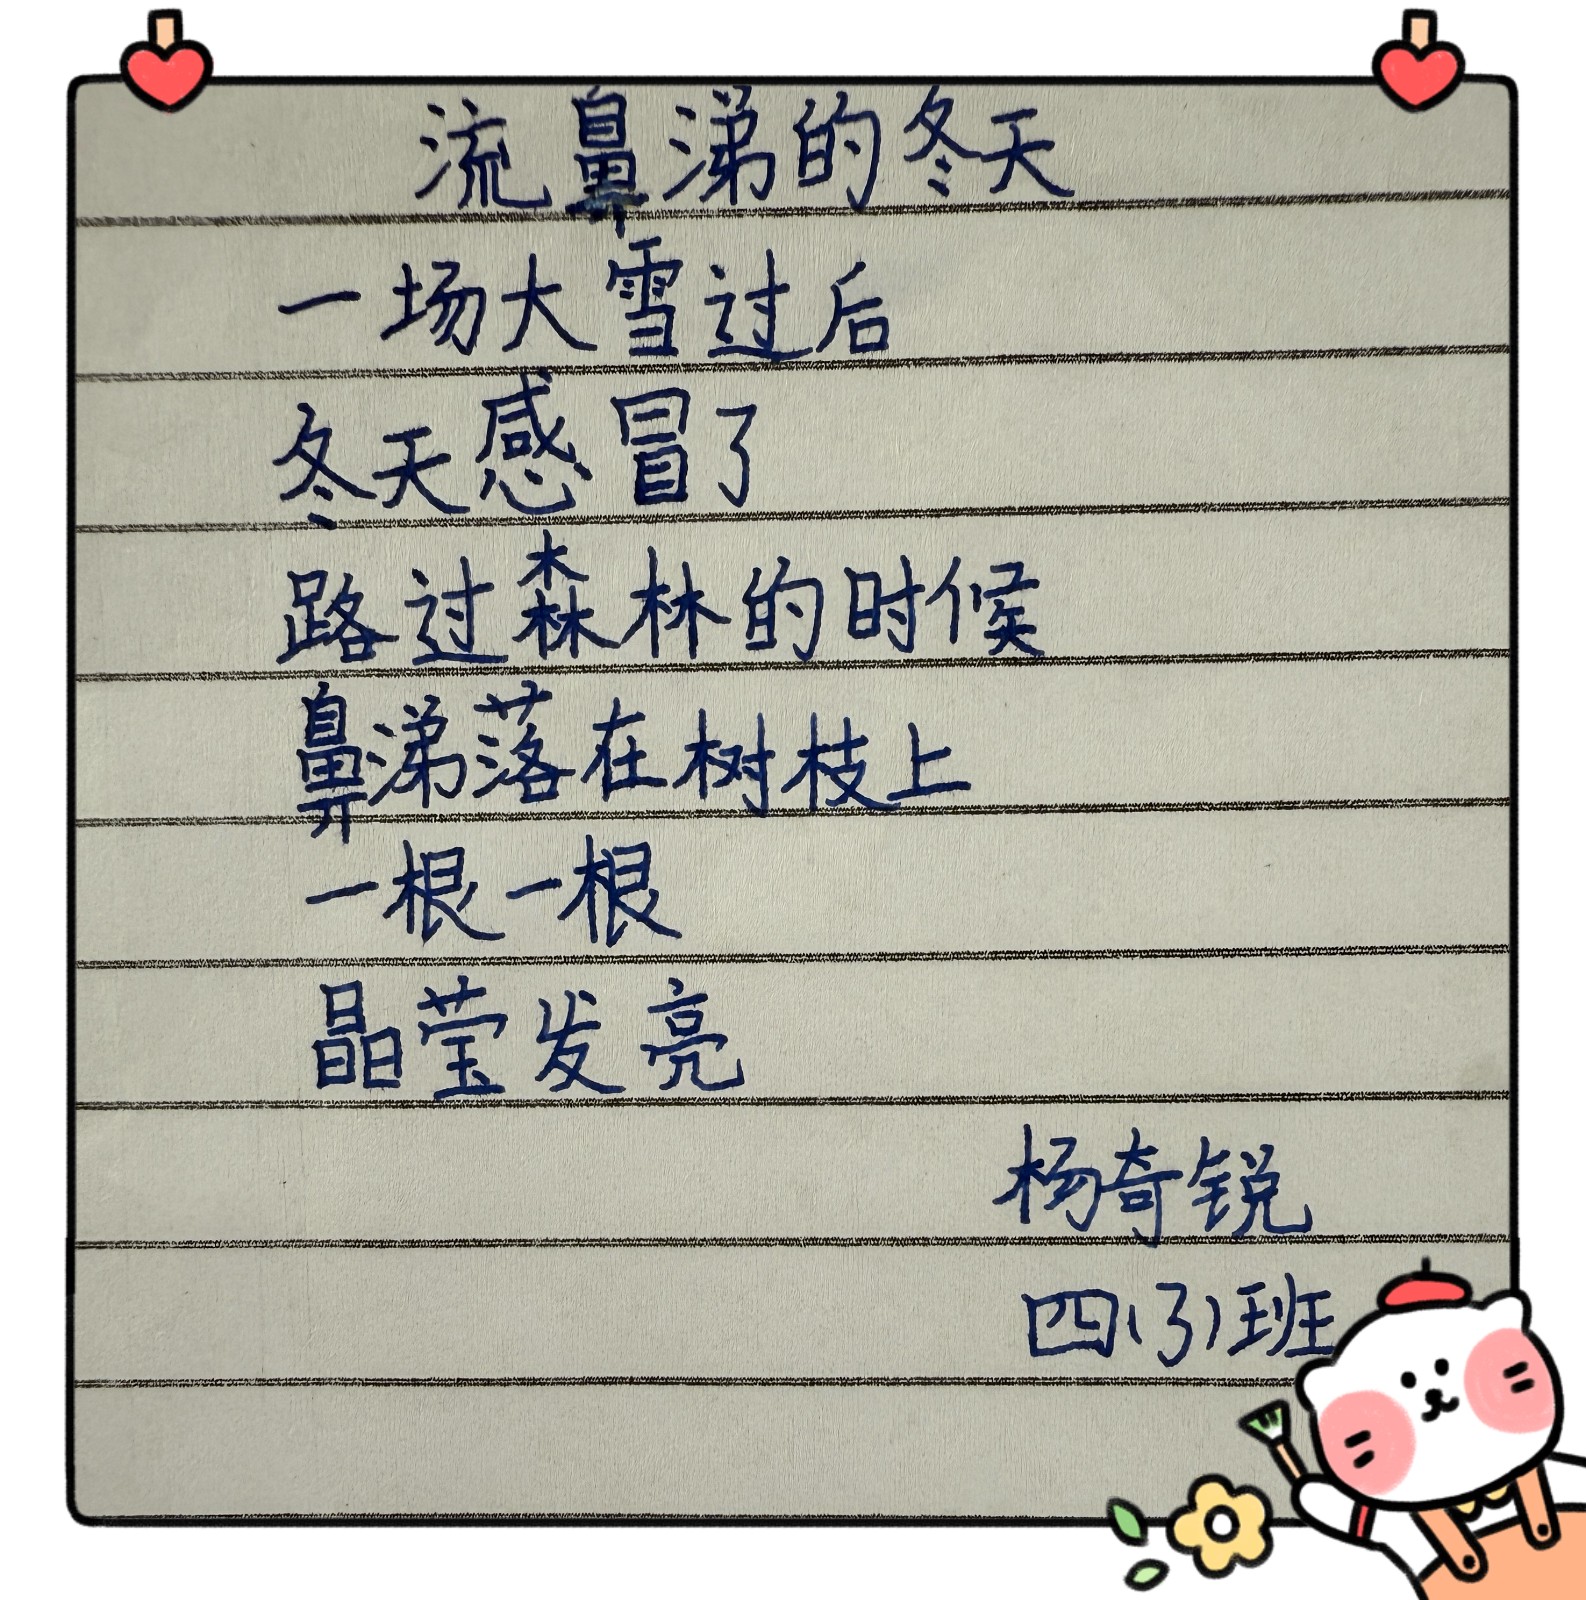 流鼻涕的冬天
一场大雪过后
冬天感冒了
路过森林的时候
鼻涕落在树枝上
一根一根
晶莹发亮
杨奇锐
四(3)班